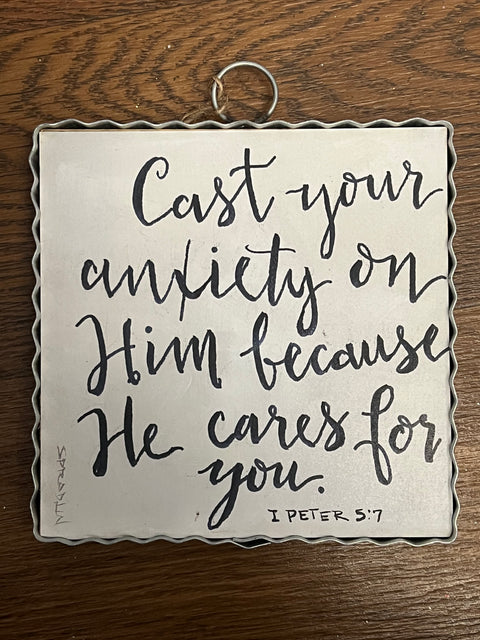 Cast your
anxiety on
Him because
He cares for
you.
I PETER 5:7
SPRADLIN